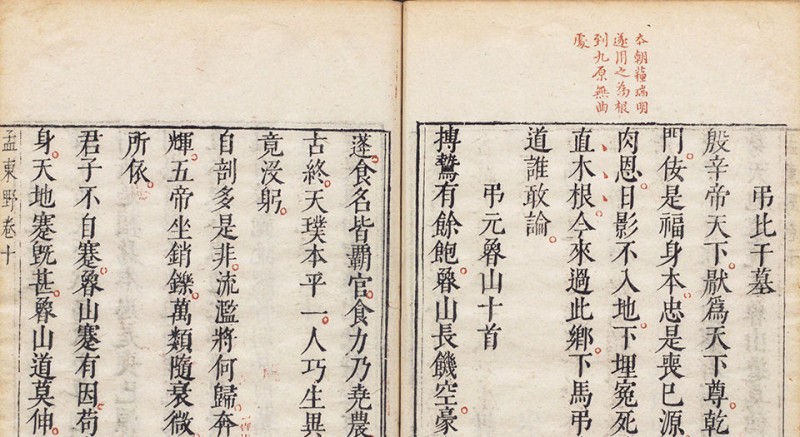 本朝蘓端明
遂用之為根
到九原無曲
處
弔比干墓
殷辛帝天下厭爲天下尊乾
門佞是福身本忠是喪已源
肉恩日影不入地下埋冤死
直木根今來過此鄉下馬弔
道誰敢論
弔元魯山十首
搏鷙有餘飽魯山長饑空豪
蓬食名皆霸官食力乃堯農
古終天璞本平一人巧生異
竟没躬
自剖多是非流濫將何歸奔
輝五帝坐銷鑠萬類隨衰微
所依
君子不自蹇魯山蹇有因苟
身天地蹇旣甚魯山道莫伸
孟東野卷十